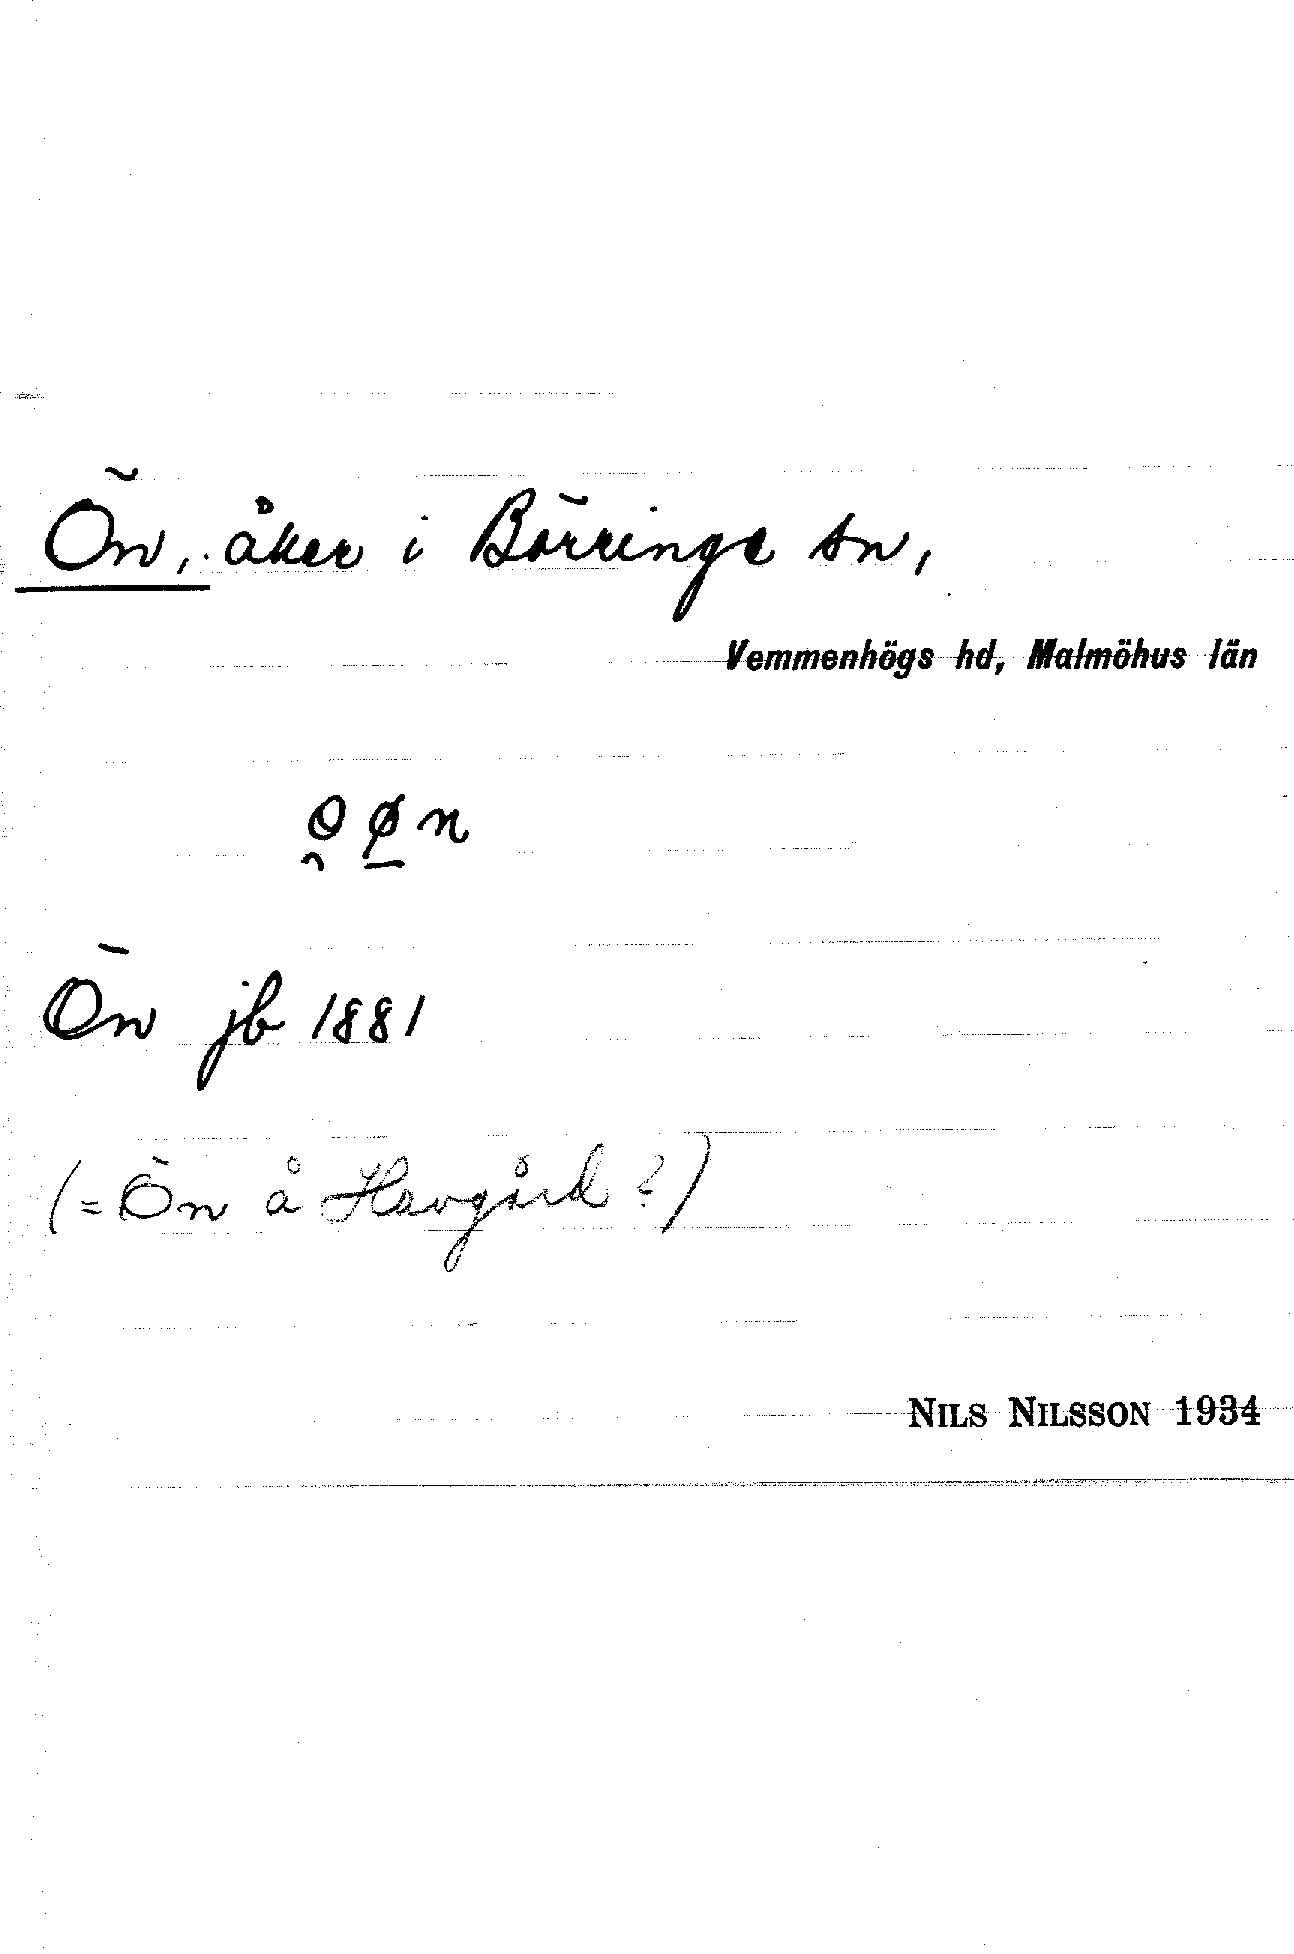 Ön, åker i Börringe sn,
Vemmenhögs hd, Malmöhus län
Ön jb 1881
(= Ön å Havgård?)
NILS NILSSON 1934